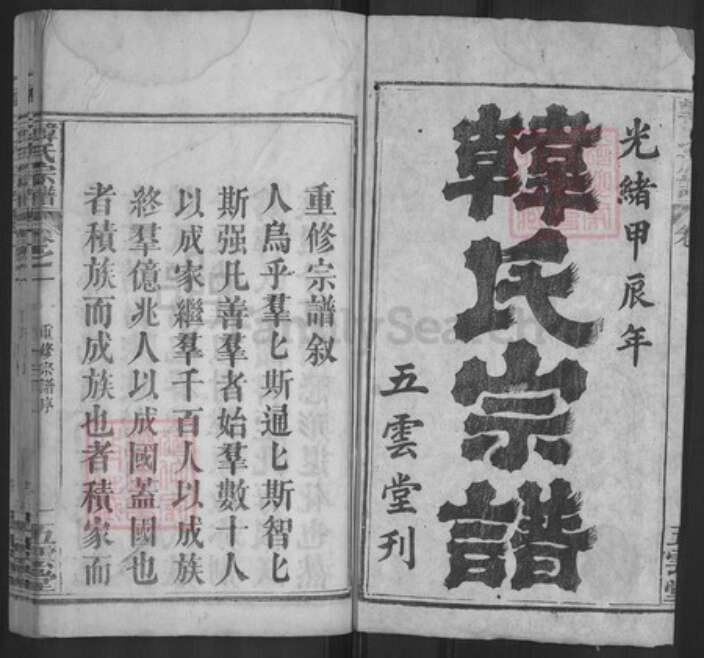 光緒甲辰年
韓氏宗譜
五雲堂刊
重修宗譜叙
人烏乎羣匕斯通匕斯智匕
斯强凡善羣者始羣數十人
以成家繼羣千百人以成族
終羣億兆人以成國蓋國也
者積族而成族也者積家而
韓氏宗譜
卷之一
重修宗譜序
五雲堂
FamilySearch